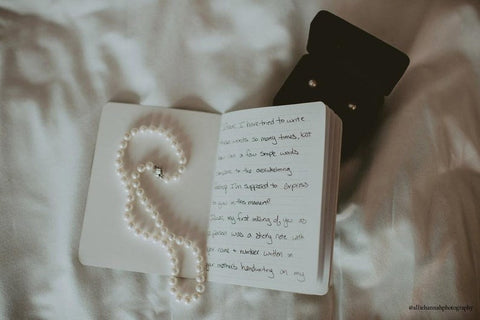 I have tried to write
these words so many times, but
how can a few simple words
compare to the overwhelming
I'm supposed to express
to you in this moment?
my first inkling of you as
a person was a sticky note with
your name + number written in
your mother's handwriting on my
@alliehannahphotography